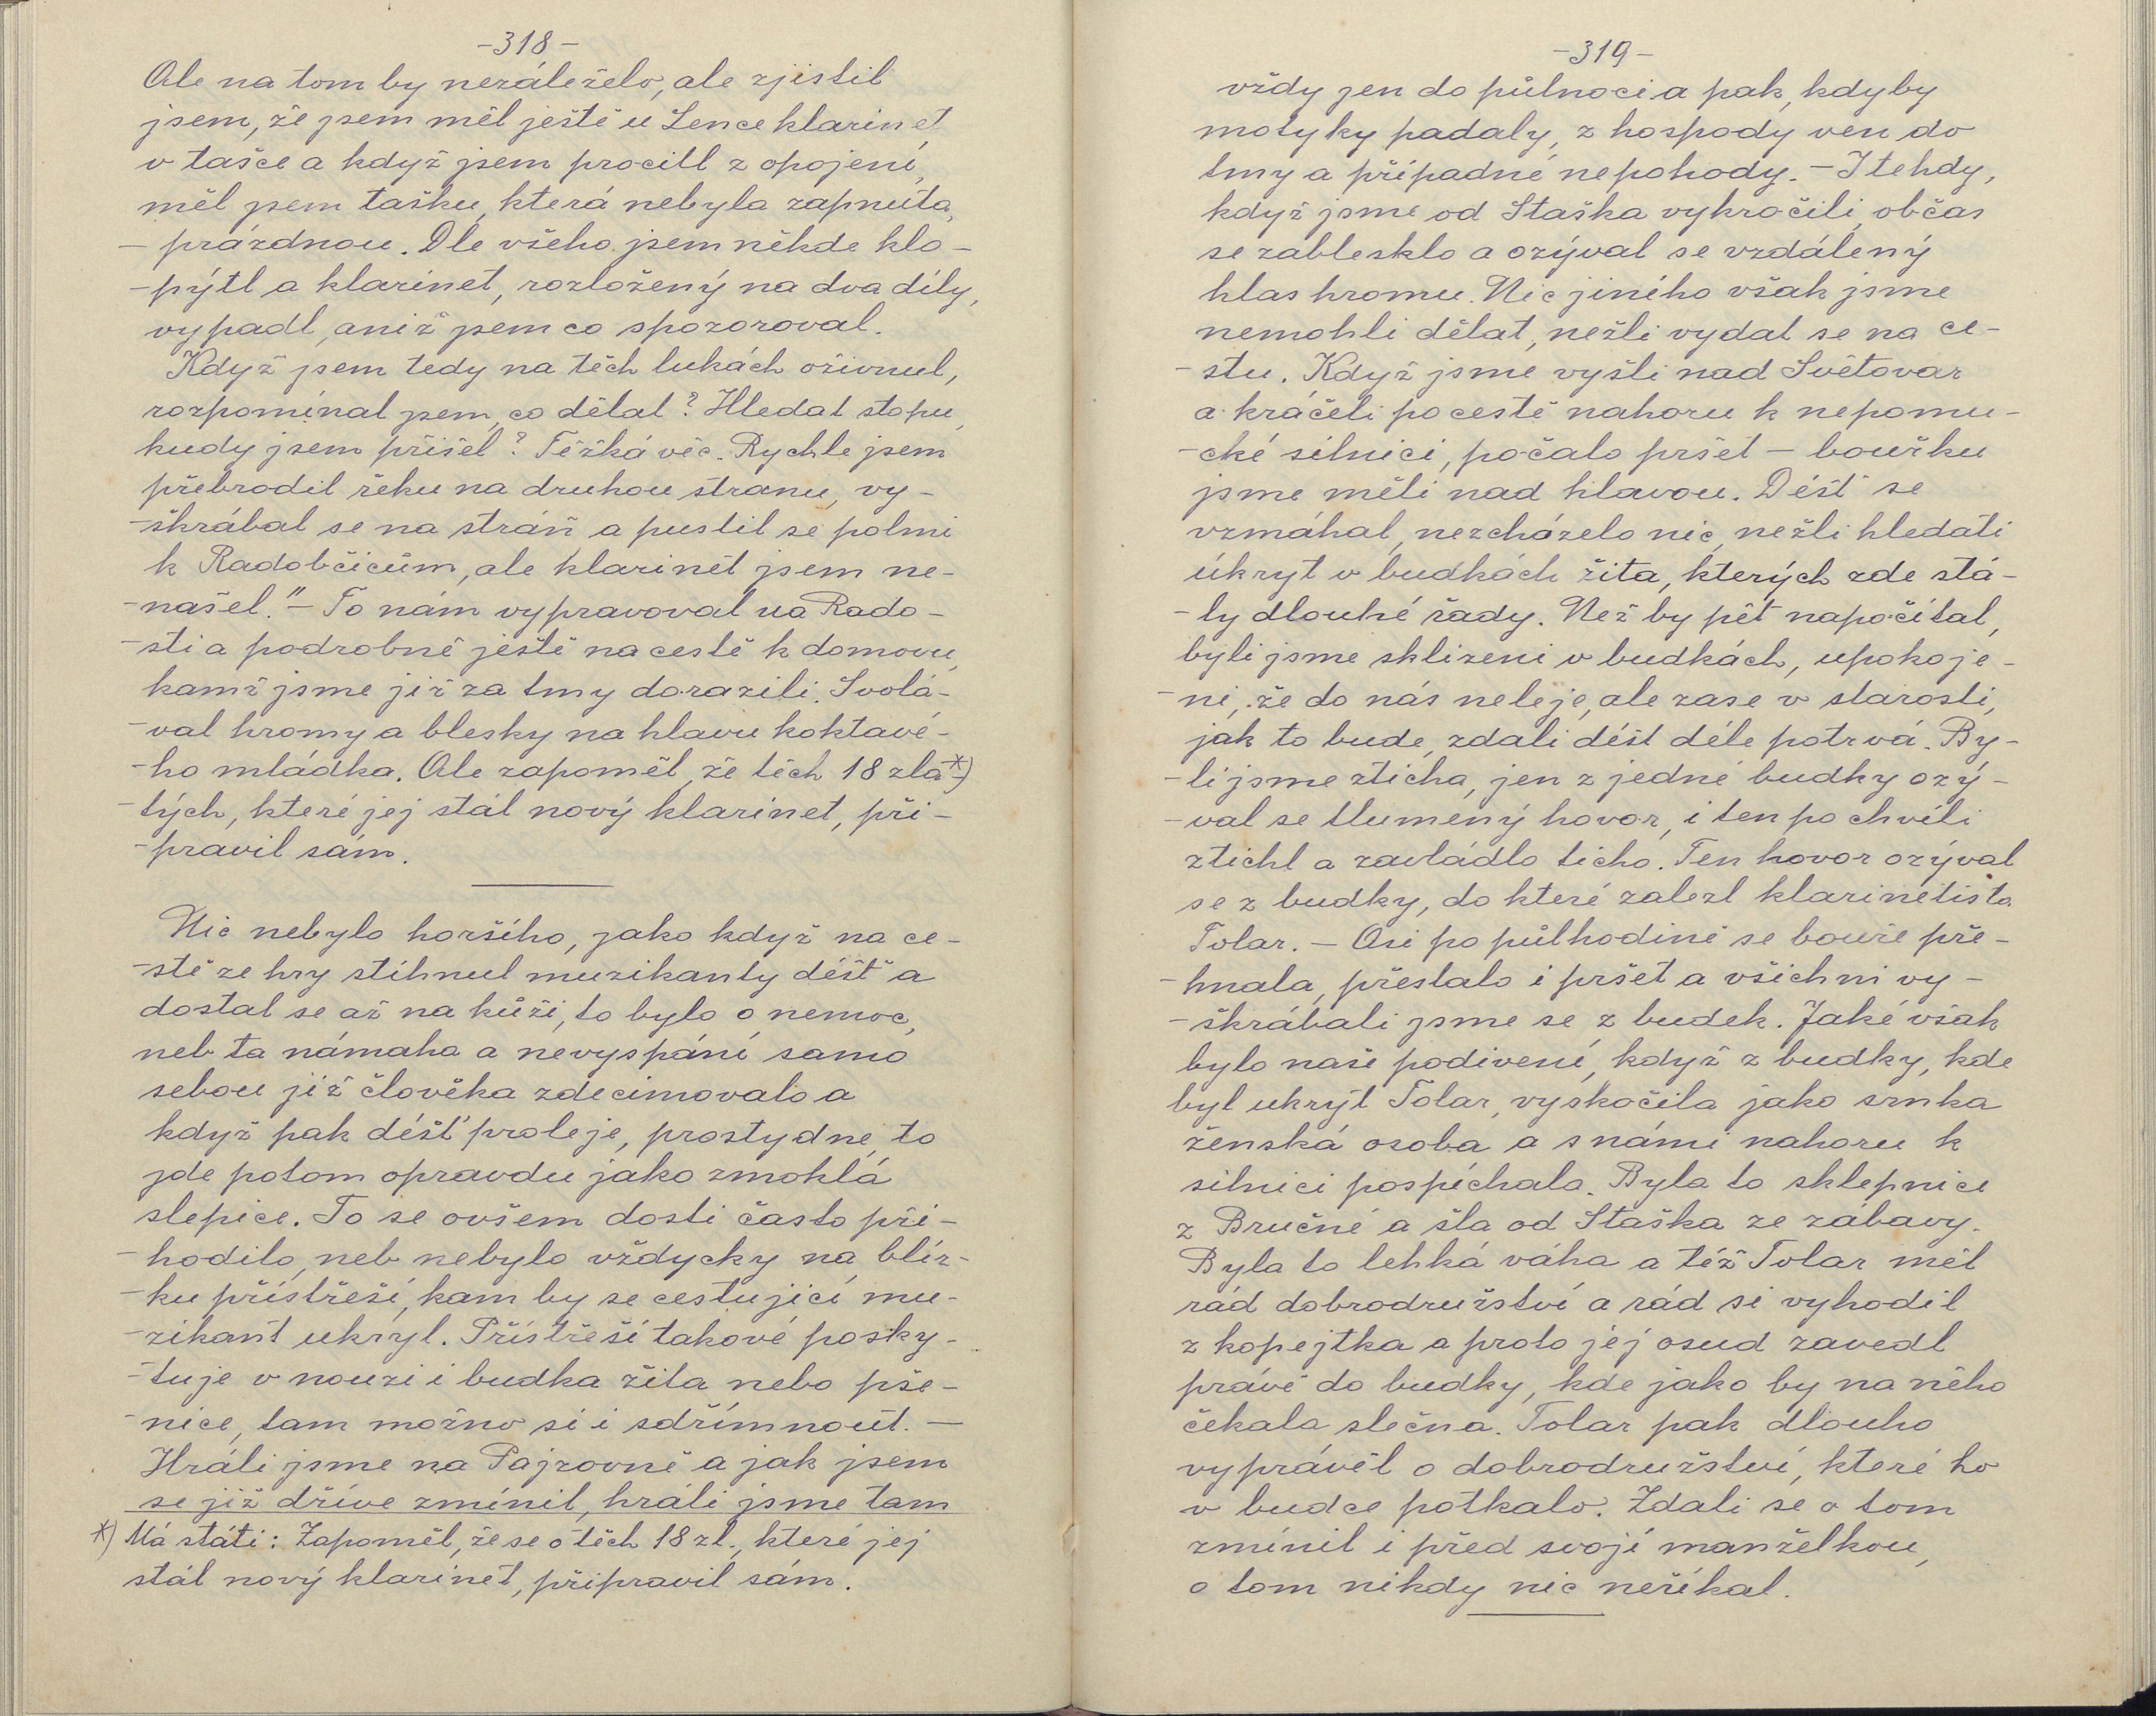 -318-
Ale na tom by nezáleželo, ale zjistil
jsem, že jsem měl ještě u Lence klarinet
v tašce a když jsem procitl z opojení,
měl jsem tašku, která nebyla zapnuta,
- prázdnou. Dle všeho jsem někde klo-
-pýtl a klarinet, rozložený na dva díly,
vypadl, aniž jsem co spozoroval.
Když jsem tedy na těch lukách oživnul,
rozpomínal jsem, co dělat? Hledat stopu,
kudy jsem přišel? Těžká věc. Rychle jsem
přebrodil řeku na druhou stranu, vy-
-škrábal se na stráň a pustil se polmi
k Radobčicům, ale klarinet jsem ne-
-našel." - To nám vypravoval na Rado-
-sti a podrobně ještě na cestě k domovu,
kamž jsme již za tmy dorazili. Svolá-
-val hromy a blesky na hlavu koktavé-
-ho mládka. Ale zapoměl, že těch 18 zla-*)
-tých, které jej stál nový klarinet, při-
-pravil sám.
Nic nebylo horšího, jako když na ce-
-stě ze hry stihnul muzikanty déšť a
dostal se až na kůži, to bylo o nemoc,
neb ta námaha a nevyspání samo
sebou již člověka zdecimovalo a
když pak déšť proleje, prostydne, to
jde potom opravdu jako zmoklá
slepice. To se ovšem dosti často při-
-hodilo, neb nebylo vždycky na blíz-
-ku přístřeší, kam by se cestující mu-
-zikant ukryl. Přístřeší takové posky-
-tuje v nouzi i budka žita nebo pše-
-nice, tam možno si i sdřímnout. -
Hráli jsme na Pajzovně a jak jsem
se již dříve zmínil, hráli jsme tam
*) Má státi: Zapoměl, že se o těch 18 zl., které jej
stál nový klarinet, připravil sám.
-319-
vždy jen do půlnoci a pak, kdyby
motyky padaly, z hospody ven do
tmy a případné nepohody. - I tehdy,
když jsme od Staška vykročili, občas
se zablesklo a ozýval se vzdálený
hlas hromu. Nic jiného však jsme
nemohli dělat, nežli vydat se na ce-
-stu. Když jsme vyšli nad Světovar
a kráčeli po cestě nahoru k nepomu-
-cké silnici, počalo pršet - bouřku
jsme měli nad hlavou. Déšť se
vzmáhal, nezcházelo nic, nežli hledati
úkryt v budkách žita, kterých zde stá-
-ly dlouhé řady. Než by pět napočítal,
byli jsme sklizeni v budkách, upokoje-
-ni, že do nás neleje, ale zase v starosti,
jak to bude, zdali déšť déle potrvá. By-
-li jsme zticha, jen z jedné budky ozý-
-val se tlumený hovor, i ten po chvíli
ztichl a zavládlo ticho. Ten hovor ozýval
se z budky, do které zalezl klarinetista
Tolar. - Asi po půlhodině se bouře pře-
-hnala, přestalo i pršet a všichni vy-
-škrábali jsme se z budek. Jaké však
bylo naše podivení, když z budky, kde
byl ukryt Tolar, vyskočila jako srnka
ženská osoba a s námi nahoru k
silnici pospíchala. Byla to sklepnice
z Bručné a šla od Staška ze zábavy.
Byla to lehká váha a též Tolar měl
rád dobrodružství a rád si vyhodil
z kopejtka a proto jej osud zavedl
právě do budky, kde jako by na něho
čekala slečna. Tolar pak dlouho
vyprávěl o dobrodružství, které ho
v budce potkalo. Zdali se o tom
zmínil i před svojí manželkou,
o tom nikdy nic neříkal.